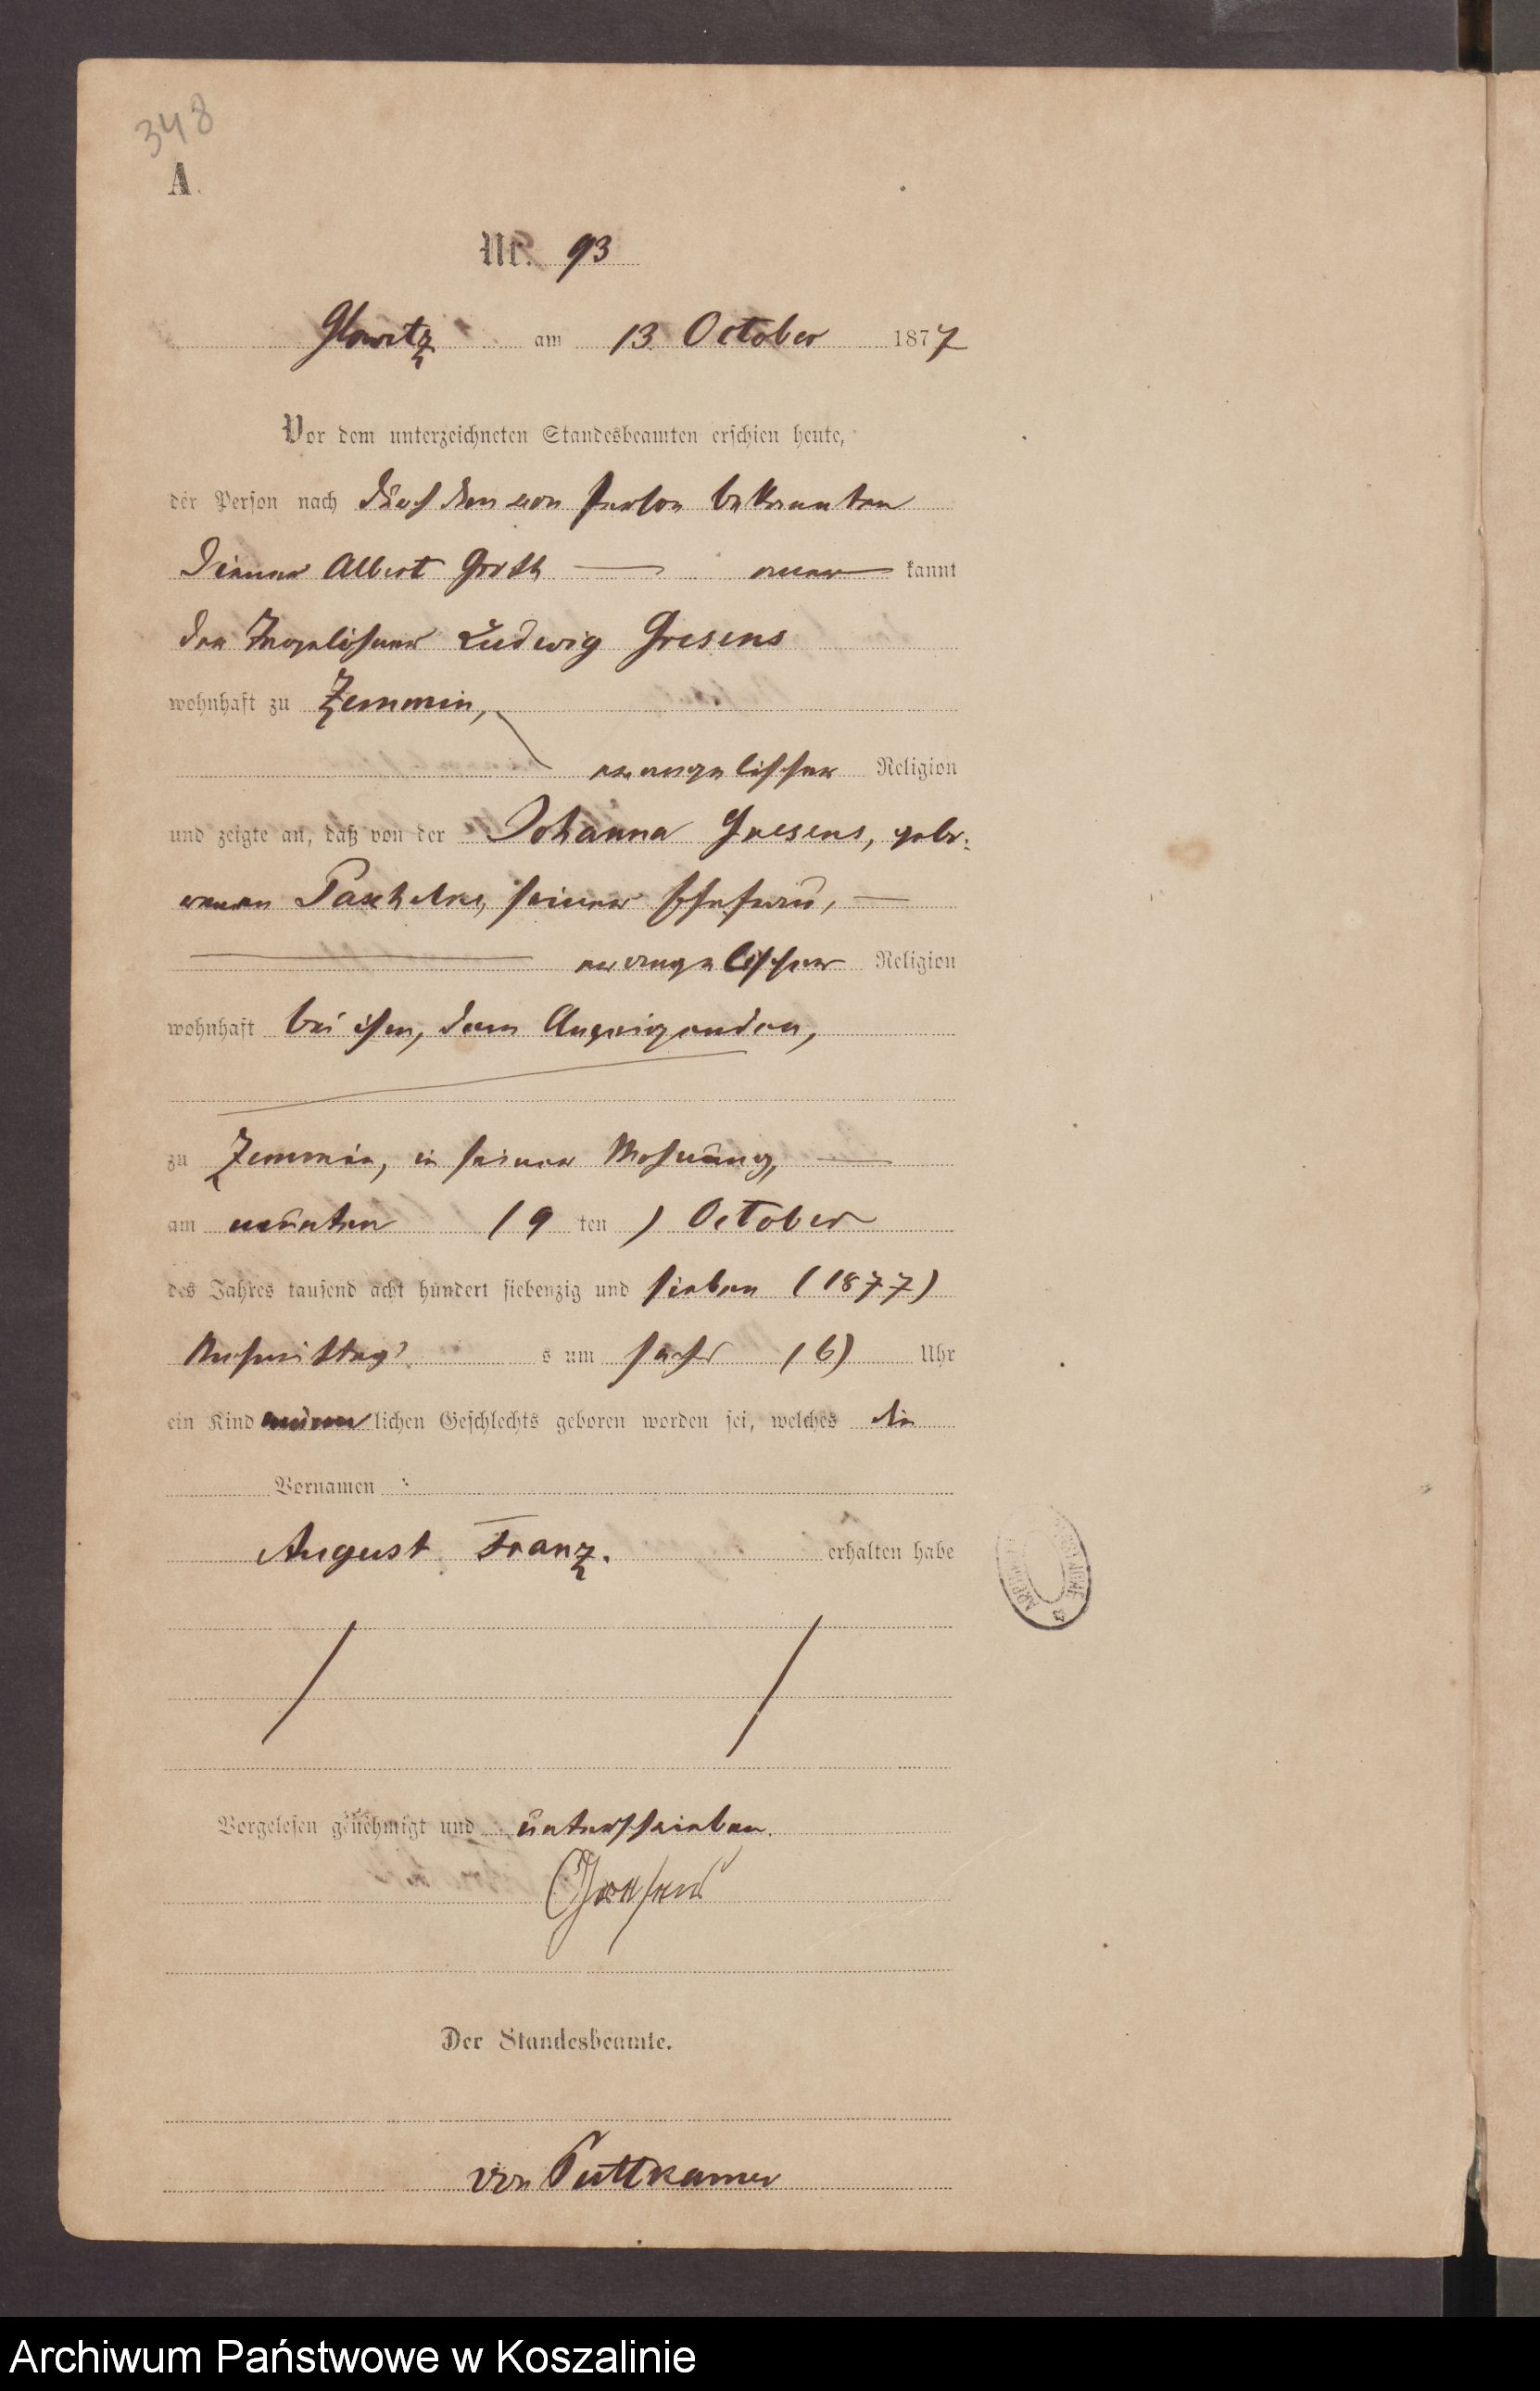 348
A.
Nr. 93
Glowitz am 13. October 1877
Vor dem unterzeichneten Standesbeamten erschien heute,
der Person nach durch den von Person bekannten
Diener Albert Groth — aner— kannt
der Tagelöhner Ludwig Gresens
wohnhaft zu Zemmin,
evangelischer Religion
und zeigte an, daß von der Johanna Gresens, gebo-
renen Paschelke, seiner Ehefrau, —
— evangelischer Religion
wohnhaft bei ihm, dem Anzeigenden,
zu Zemmin, in seiner Wohnung, —
am neunten (9 ten) October
des Jahres tausend acht hundert siebenzig und sieben (1877)
Nachmittag s um sechs (6) Uhr
ein Kind männlichen Geschlechts geboren worden sei, welches die
Vornamen :
August Franz. erhalten habe
Vorgelesen genehmigt und unterschrieben.
Gresens
Der Standesbeamte.
von Puttkamer
Archiwum Państwowe w Koszalinie